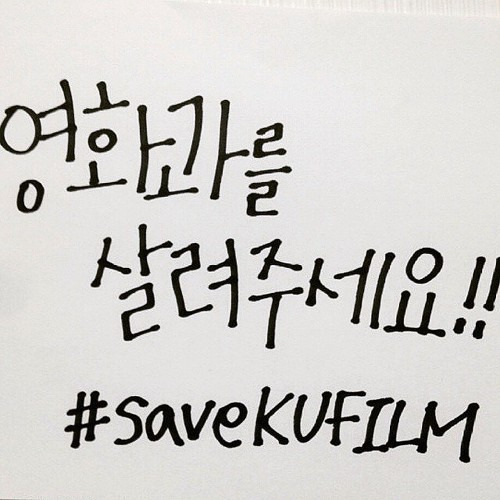 영화과를
살려주세요!!
#saveKUFILM